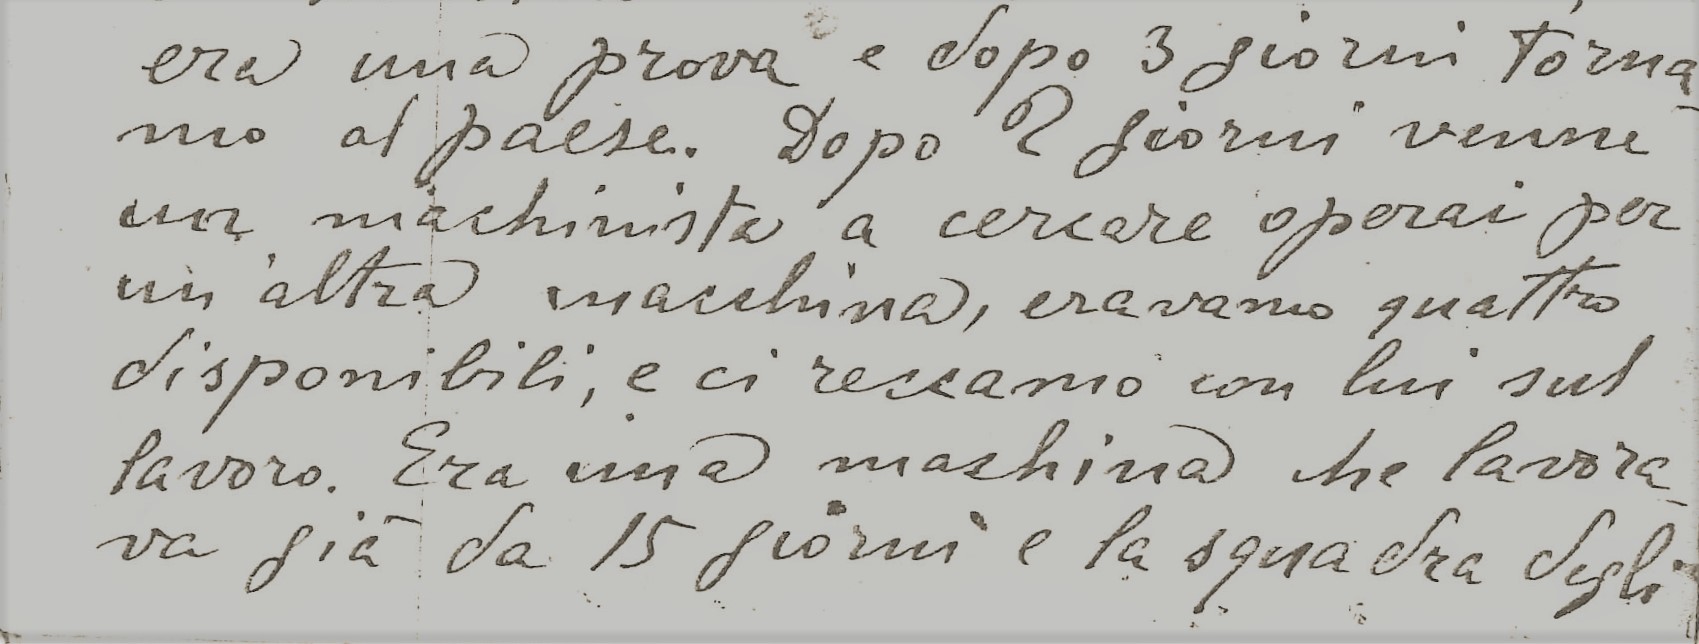 era una prova e dopo 3 giorni torna-
mo al paese. Dopo 2 giorni venne
un machinista a cercare operai per
un'altra macchina, eravamo quattro
disponibili, e ci reccamo con lui sul
lavoro. Era una machina che lavora-
va già da 15 giorni e la squadra degli